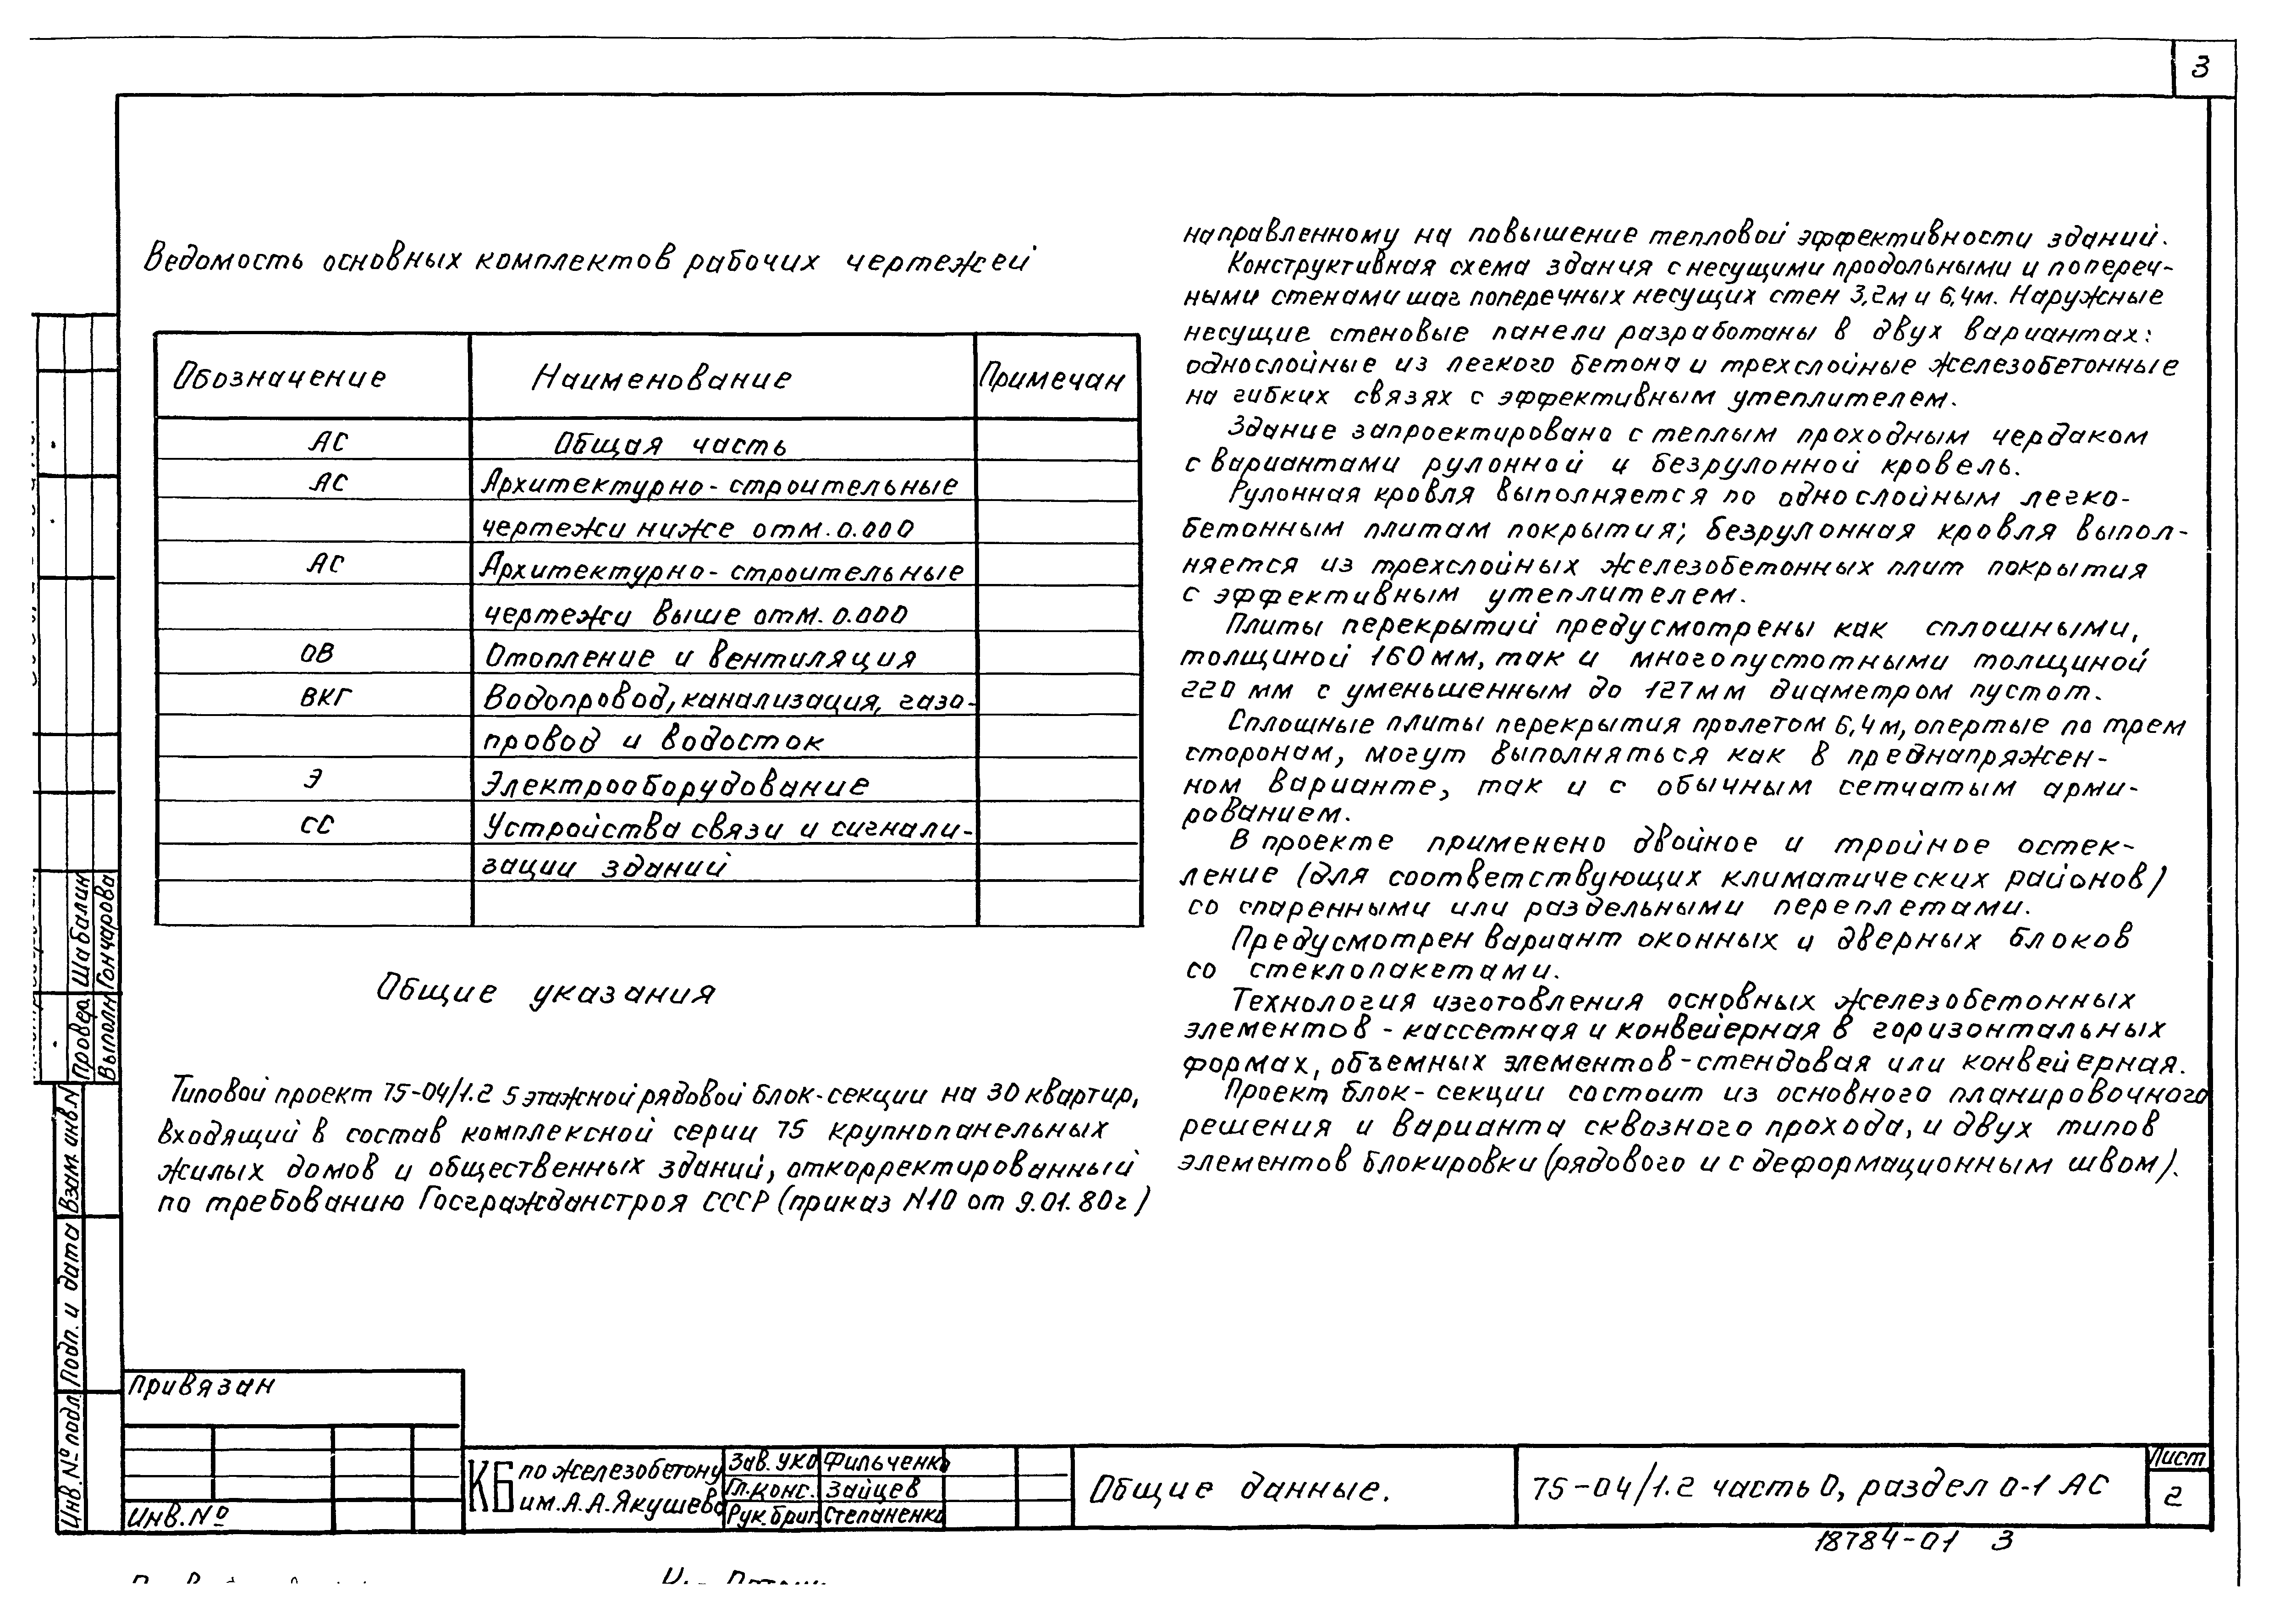 3
Ведомость основных комплектов рабочих чертежей
Обозначение Наименование Примечан
АС Общая часть
АС Архитектурно-строительные
чертежи ниже отм. 0.000
АС Архитектурно-строительные
чертежи выше отм. 0.000
ОВ Отопление и вентиляция
ВКГ Водопровод, канализация, газо-
провод и водосток
Э Электрооборудование
СС Устройства связи и сигнали-
зации зданий
Общие указания
Типовой проект 75-04/1.2 5 этажной рядовой блок-секции на 30 квартир,
входящий в состав комплексной серии 75 крупнопанельных
жилых домов и общественных зданий, откорректированный
по требованию Госгражданстроя СССР (приказ N10 от 9.01.80г)
направленному на повышение тепловой эффективности зданий.
Конструктивная схема здания с несущими продольными и попереч-
ными стенами шаг поперечных несущих стен 3,2м и 6,4м. Наружные
несущие стеновые панели разработаны в двух вариантах:
однослойные из легкого бетона и трехслойные железобетонные
на гибких связях с эффективным утеплителем.
Здание запроектировано с теплым проходным чердаком
с вариантами рулонной и безрулонной кровель.
Рулонная кровля выполняется по однослойным легко-
бетонным плитам покрытия; безрулонная кровля выпол-
няется из трехслойных железобетонных плит покрытия
с эффективным утеплителем.
Плиты перекрытий предусмотрены как сплошными,
толщиной 160 мм, так и многопустотными толщиной
220 мм с уменьшенным до 127мм диаметром пустот.
Сплошные плиты перекрытия пролетом 6,4 м, опертые по трем
сторонам, могут выполняться как в преднапряжен-
ном варианте, так и с обычным сетчатым арми-
рованием.
В проекте применено двойное и тройное остек-
ление (для соответствующих климатических районов)
со спаренными или раздельными переплетами.
Предусмотрен вариант оконных и дверных блоков
со стеклопакетами.
Технология изготовления основных железобетонных
элементов - кассетная и конвейерная в горизонтальных
формах, объемных элементов-стендовая или конвейерная.
Проект блок-секции состоит из основного планировочного
решения и варианта сквозного прохода, и двух типов
элементов блокировки (рядового и с деформационным швом).
Провер. Шабалин
Выполн Гончарова
Взам. инв.N
Подп. и дата
Инв. № подл.
Привязан
Инв. №
КБ по железобетону
им. А.А. Якушева
Зав. УКО Фильченко
Гл. конс. Зайцев
Рук. бриг. Степаненко
Общие данные.
75-04/1.2 часть 0, раздел 0-1 АС
Лист
2
18784-01 3